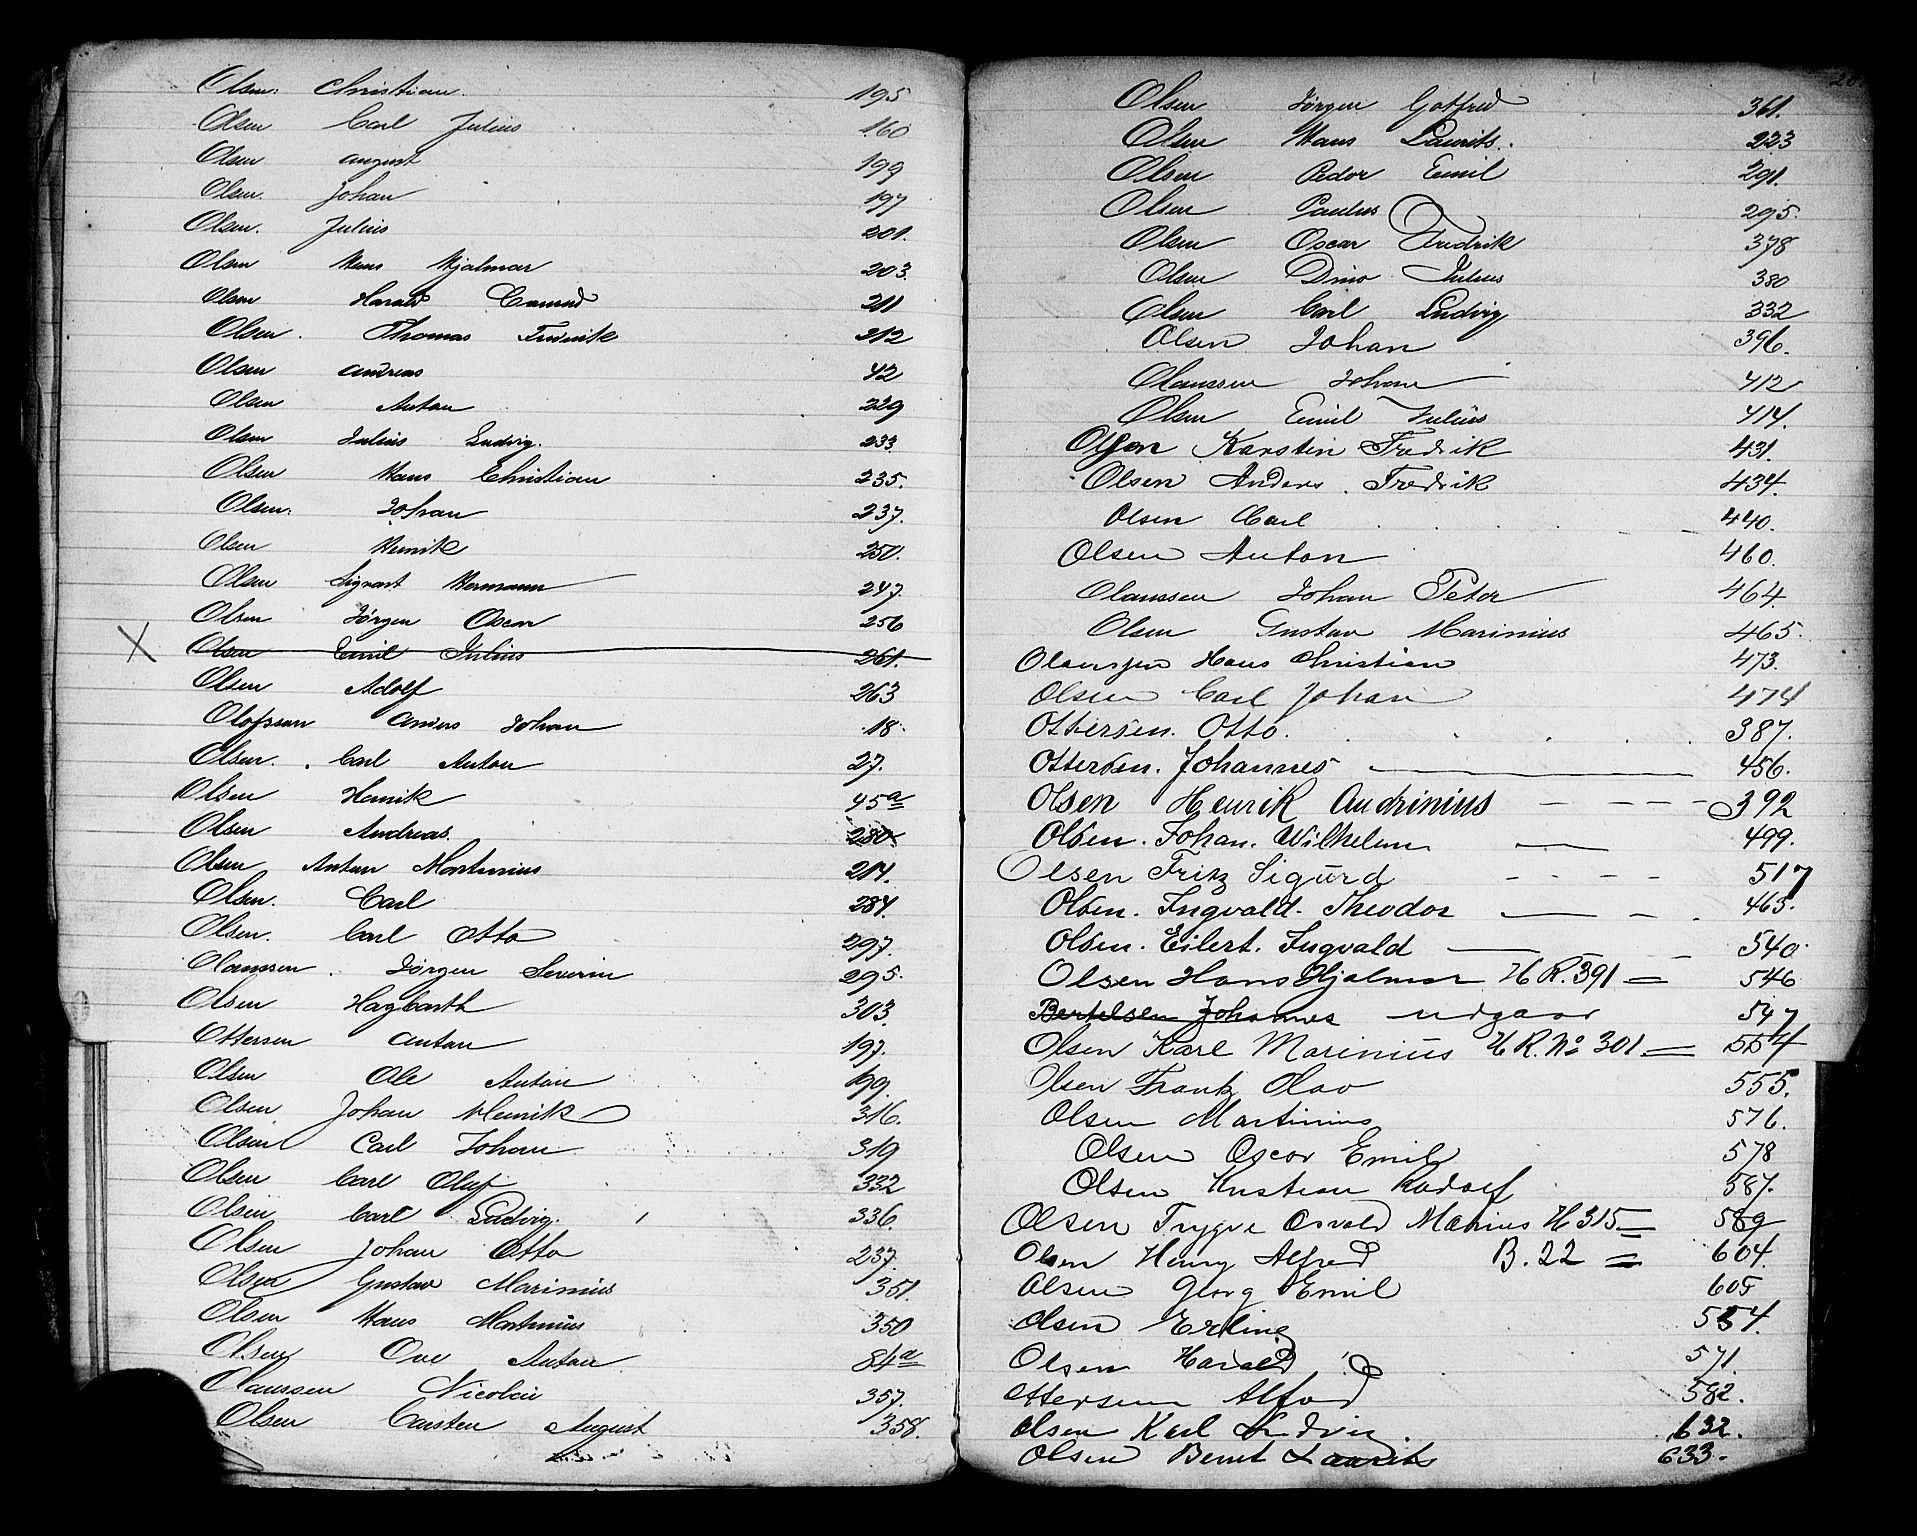 Olsen. Christian. 195
Olsen Carl Julius 160
Olsen august 199
Olsen. Johan 197
Olsen. Julius 201.
Olsen Hans Hjalmar 203.
Olsen Harald Conrad 211
Olsen. Thomas Fredrik 212
Olsen andreas 42
Olsen Anton 229
Olsen Julius Ludvig. 233
Olsen Hans Christian 235.
Olsen. Johan 237.
Olsen Henrik 250.
Olsen Sigvart Hermann 247.
Olsen Jørgen Oscar 256
X Olsen Emil Julius 261.
Olsen Adolf 263
Olofsson Johan 18.
Olsen. Carl Anton 27.
Olsen Henrik 45a
Olsen Andreas. 280
Olsen Anton Martinius 214.
Olsen. Carl 284.
Olsen. Carl Otto 297.
Olaussen. Jørgen Severin 295.
Olsen Hagbarth 303.
Ottersen anton 197.
Olsen Ole Anton 199.
Olsen Johan Henrik 316.
Olsen Carl Johan 319
Olsen Carl Oluf 332
Olsen Carl Ludvig. 336
Olsen Johan Otto 237.
Olsen Gustav Marinius 351.
Olsen Hans Martinius 350
Olsen Ove Anton 84a
Olaussen Nicolai 357.
Olsen Carsten August 358.
Olsen Jørgen Gotfred 361.
Olsen Hans Laurits. 223
Olsen Peder Emil 291.
Olsen Paulus 295.
Olsen Oscar Fredrik 378
Olsen Julius 380
Olsen Carl Ludvig 332
Olsen Johan 396.
Olaussen Johan 412
Olsen Emil Julius 414.
Olsen Karsten Fredrik 431.
Olsen Anders. Fredrik 434.
Olsen Carl 440.
Olsen Anton 460.
Olaussen Johan Peter 464.
Olsen Gustav Marinius 465.
Olaussen Hans Christian 473.
Olsen Carl Johan 474
Ottersen. Otto. 387.
Ottersen. Johannes 456.
Olsen Henrik Andrinius 392
Olsen. Johan. Wilhelm 499.
Olsen Fritz Sigurd 517
Olsen. Ingvald. Theodor 465.
Olsen. Eilert. Ingvald 540.
Olsen Hans Hjalmar H R. 391 = 546
Bertelsen Johannes udgaar 547
Olsen Karl Marinius H R. No 301 = 554
Olsen Frantz Olav 555.
Olsen Martinius 576.
Olsen Oscar Emil 578
Olsen Kristian Rudolf 587.
Olsen Trygve Osvald Marius H 315 = 589
Olsen Henry Alfred B. 22 = 604.
Olsen Georg Emil 605
Olsen Erling 554.
Olsen Harald 571.
Ottersen Alfred 582.
Olsen Karl Ludvig. 632.
Olsen Bernt Laurits 633.